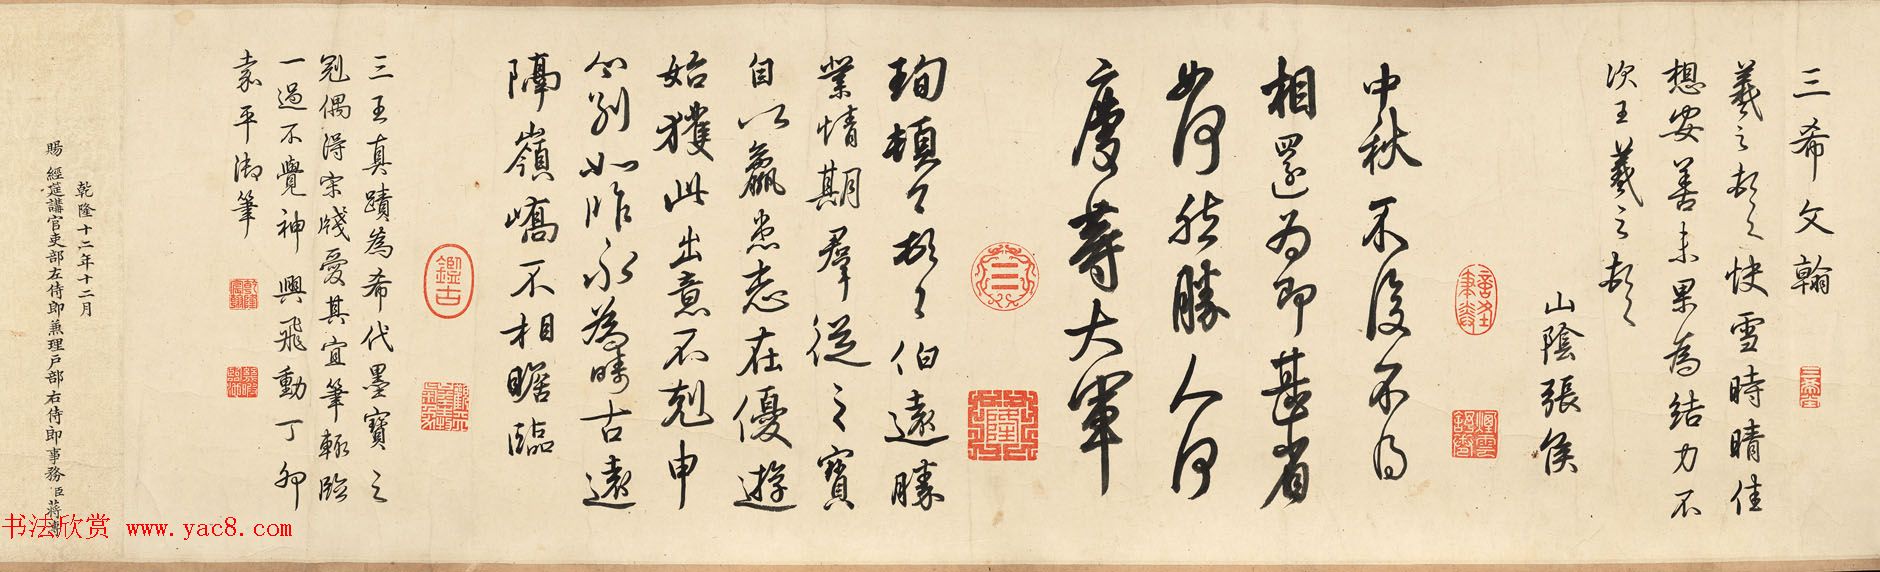 三希文翰
羲之頓首快雪時晴佳
想安善未果為結力不
次王羲之頓首
山陰張侯
中秋不復不得
相還為即甚省
如何然勝人何
慶等大軍
珣頓首頓首伯遠勝
業情期羣從之寶
自以羸患志在優遊
始獲此出意不剋申
分別如昨永為疇古遠
隔嶺嶠不相瞻臨
三王真蹟為希代墨寶之
冠偶得宋牋愛其宜筆輒臨
一過不覺神興飛動丁卯
嘉平御筆
乾隆十二年十二月
賜經筵講官吏部左侍郎兼理戶部右侍郎事務臣蔣溥
鑑古
三希堂
書法欣赏 www.yac8.com